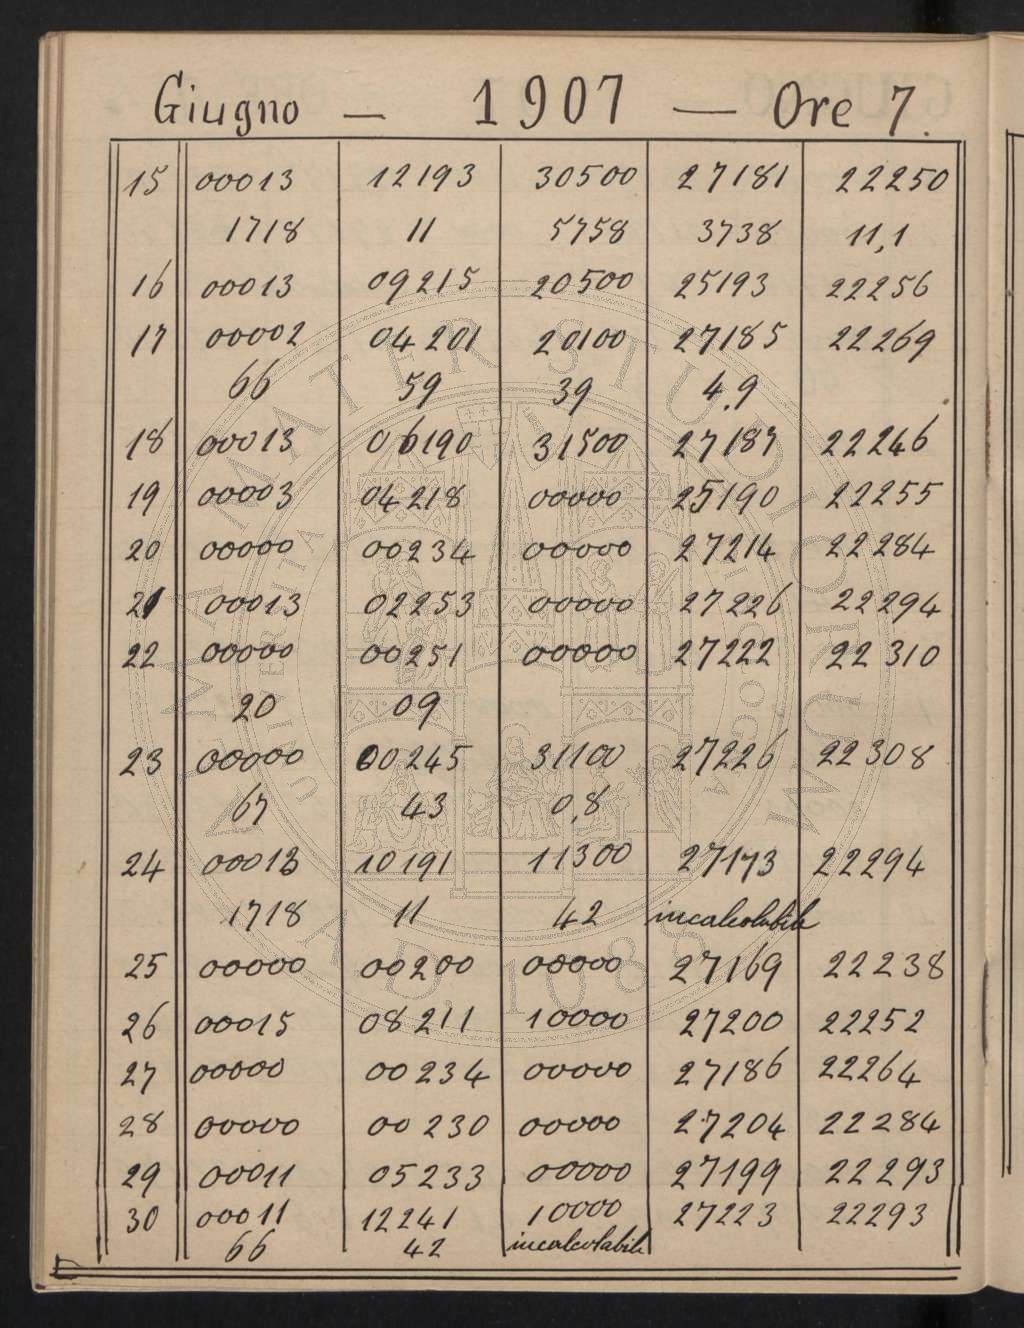 Giugno — 1907 — Ore 7.
15 00013 12193 30500 27181 22250
1718 11 5758 3738 11,1
16 00013 09215 20500 25193 22256
17 00002 04201 20100 27185 22269
66 59 39 4.9
18 00013 06190 31500 27187 22246
19 00003 04218 00000 25190 22255
20 00000 00234 00000 27214 22284
21 00013 02253 00000 27226 22294
22 00000 00251 00000 27222 22310
20 09
23 00000 00245 31100 27226 22308
67 43 0,8
24 00013 10191 11300 27173 22294
1718 11 42 incalcolabile
25 00000 00200 00000 27169 22238
26 00015 08211 10000 27200 22252
27 00000 00234 00000 27186 22264
28 00000 00230 00000 27204 22284
29 00011 05233 00000 27199 22293
30 00011 12241 10000 27223 22293
66 42 incalcolabile
ALMA MATER STUDIORUM
A.D. 1088